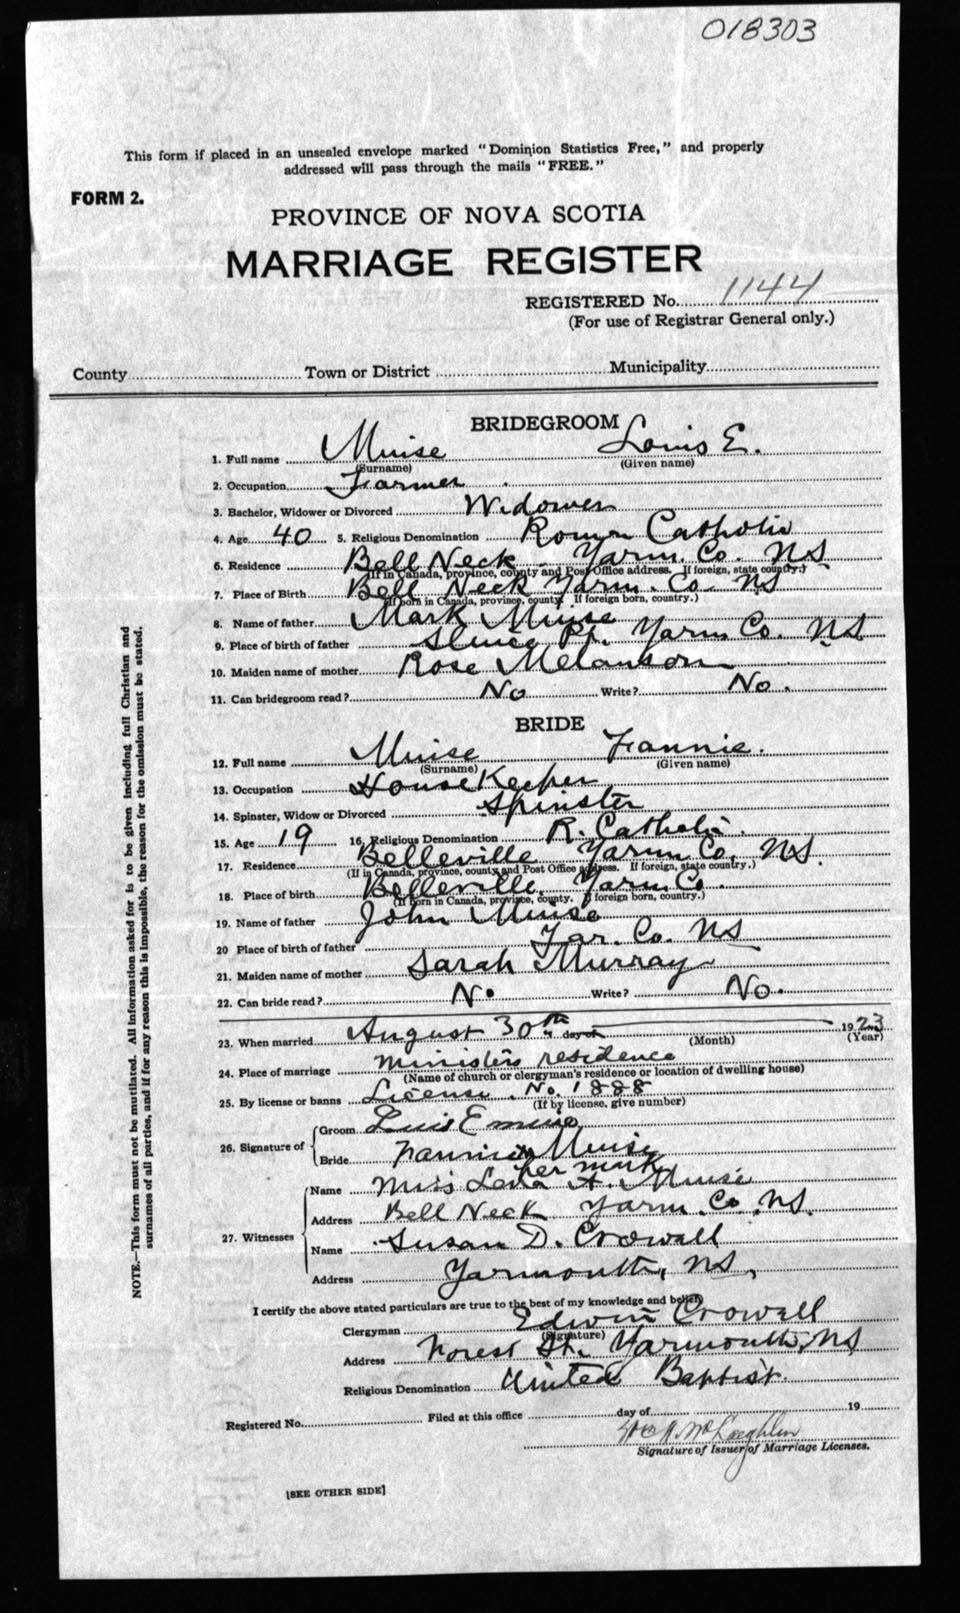 018303
This form if placed in an unsealed envelope marked "Dominion Statistics Free," and properly
addressed will pass through the mails "FREE."
FORM 2.
PROVINCE OF NOVA SCOTIA
MARRIAGE REGISTER
REGISTERED No. 1144
(For use of Registrar General only.)
County Town or District Municipality
BRIDEGROOM
1. Full name Muise Louis E.
(Surname) (Given name)
2. Occupation Farmer
3. Bachelor, Widower or Divorced Widower
4. Age 40 5. Religious Denomination Roman Catholic
6. Residence Bell Neck Yarm. Co. NS
(If in Canada, province, county and Post Office address. If foreign, state country.)
7. Place of Birth Bell Neck Yarm. Co. NS
(If born in Canada, province, county. If foreign born, country.)
8. Name of father Mark Muise
9. Place of birth of father Sluice Pt. Yarm Co. NS
10. Maiden name of mother Rose Melanson
11. Can bridegroom read? No Write? No.
BRIDE
12. Full name Muise Fannie.
(Surname) (Given name)
13. Occupation House Keeper
14. Spinster, Widow or Divorced Spinster
15. Age 19 16. Religious Denomination R. Catholic.
17. Residence Belleville Yarm Co. NS.
(If in Canada, province, county and Post Office address. If foreign, state country.)
18. Place of birth Belleville, Yarm Co.
(If born in Canada, province, county. If foreign born, country.)
19. Name of father John Muise
20 Place of birth of father Yar. Co. NS
21. Maiden name of mother Sarah Murray
22. Can bride read? No Write? No.
23. When married August 30th day of 1923
(Month) (Year)
24. Place of marriage Minister's residence
(Name of church or clergyman's residence or location of dwelling house)
25. By license or banns License. No. 1888
(If by license, give number)
26. Signature of Groom Luis E muise
Bride Fannie x Muise
her mark
27. Witnesses Name Miss Leda A. Muise
Address Bell Neck Yarm. Co. NS.
Name Susan D. Crowell
Address Yarmouth, NS,
I certify the above stated particulars are true to the best of my knowledge and belief.
Clergyman Edwin Crowell
(Signature)
Address Forest St. Yarmouth, NS
Religious Denomination United Baptist.
Registered No. Filed at this office day of 19
Signature of Issuer of Marriage Licenses.
[SEE OTHER SIDE]
NOTE.—This form must not be mutilated. All information asked for is to be given including full Christian and
surnames of all parties, and if for any reason this is impossible, the reason for the omission must be stated.